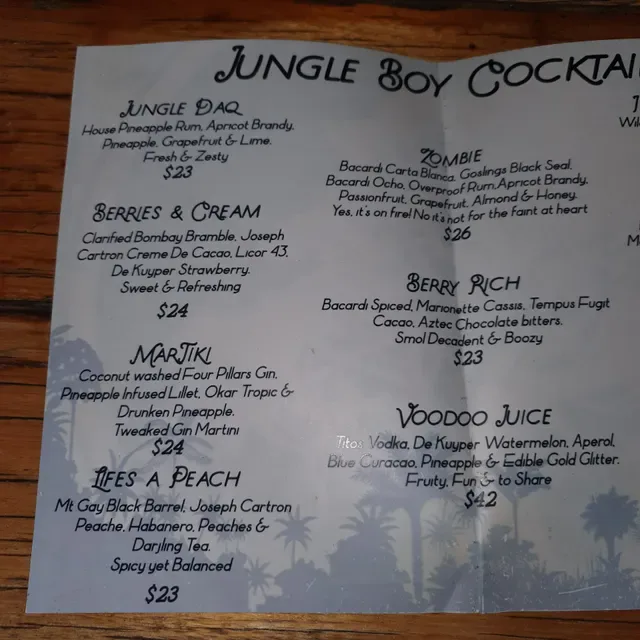 JUNGLE BOY COCKTAI
JUNGLE DAQ
House Pineapple Rum, Apricot Brandy,
Pineapple, Grapefruit & Lime.
Fresh & Zesty
$23
BERRIES & CREAM
Clarified Bombay Bramble, Joseph
Cartron Creme De Cacao, Licor 43,
De Kuyper Strawberry.
Sweet & Refreshing
$24
MARTIKI
Coconut washed Four Pillars Gin,
Pineapple Infused Lillet, Okar Tropic &
Drunken Pineapple.
Tweaked Gin Martini
$24
LIFES A PEACH
Mt Gay Black Barrel, Joseph Cartron
Peache, Habanero, Peaches &
Darjling Tea.
Spicy yet Balanced
$23
ZOMBIE
Bacardi Carta Blanca, Goslings Black Seal,
Bacardi Ocho, Overproof Rum, Apricot Brandy,
Passionfruit, Grapefruit, Almond & Honey.
Yes, it's on fire! No it's not for the faint at heart
$26
BERRY RICH
Bacardi Spiced, Marionette Cassis, Tempus Fugit
Cacao, Aztec Chocolate bitters.
Smol Decadent & Boozy
$23
VOODOO JUICE
Titos Vodka, De Kuyper Watermelon, Aperol,
Blue Curacao, Pineapple & Edible Gold Glitter.
Fruity, Fun & to Share
$42